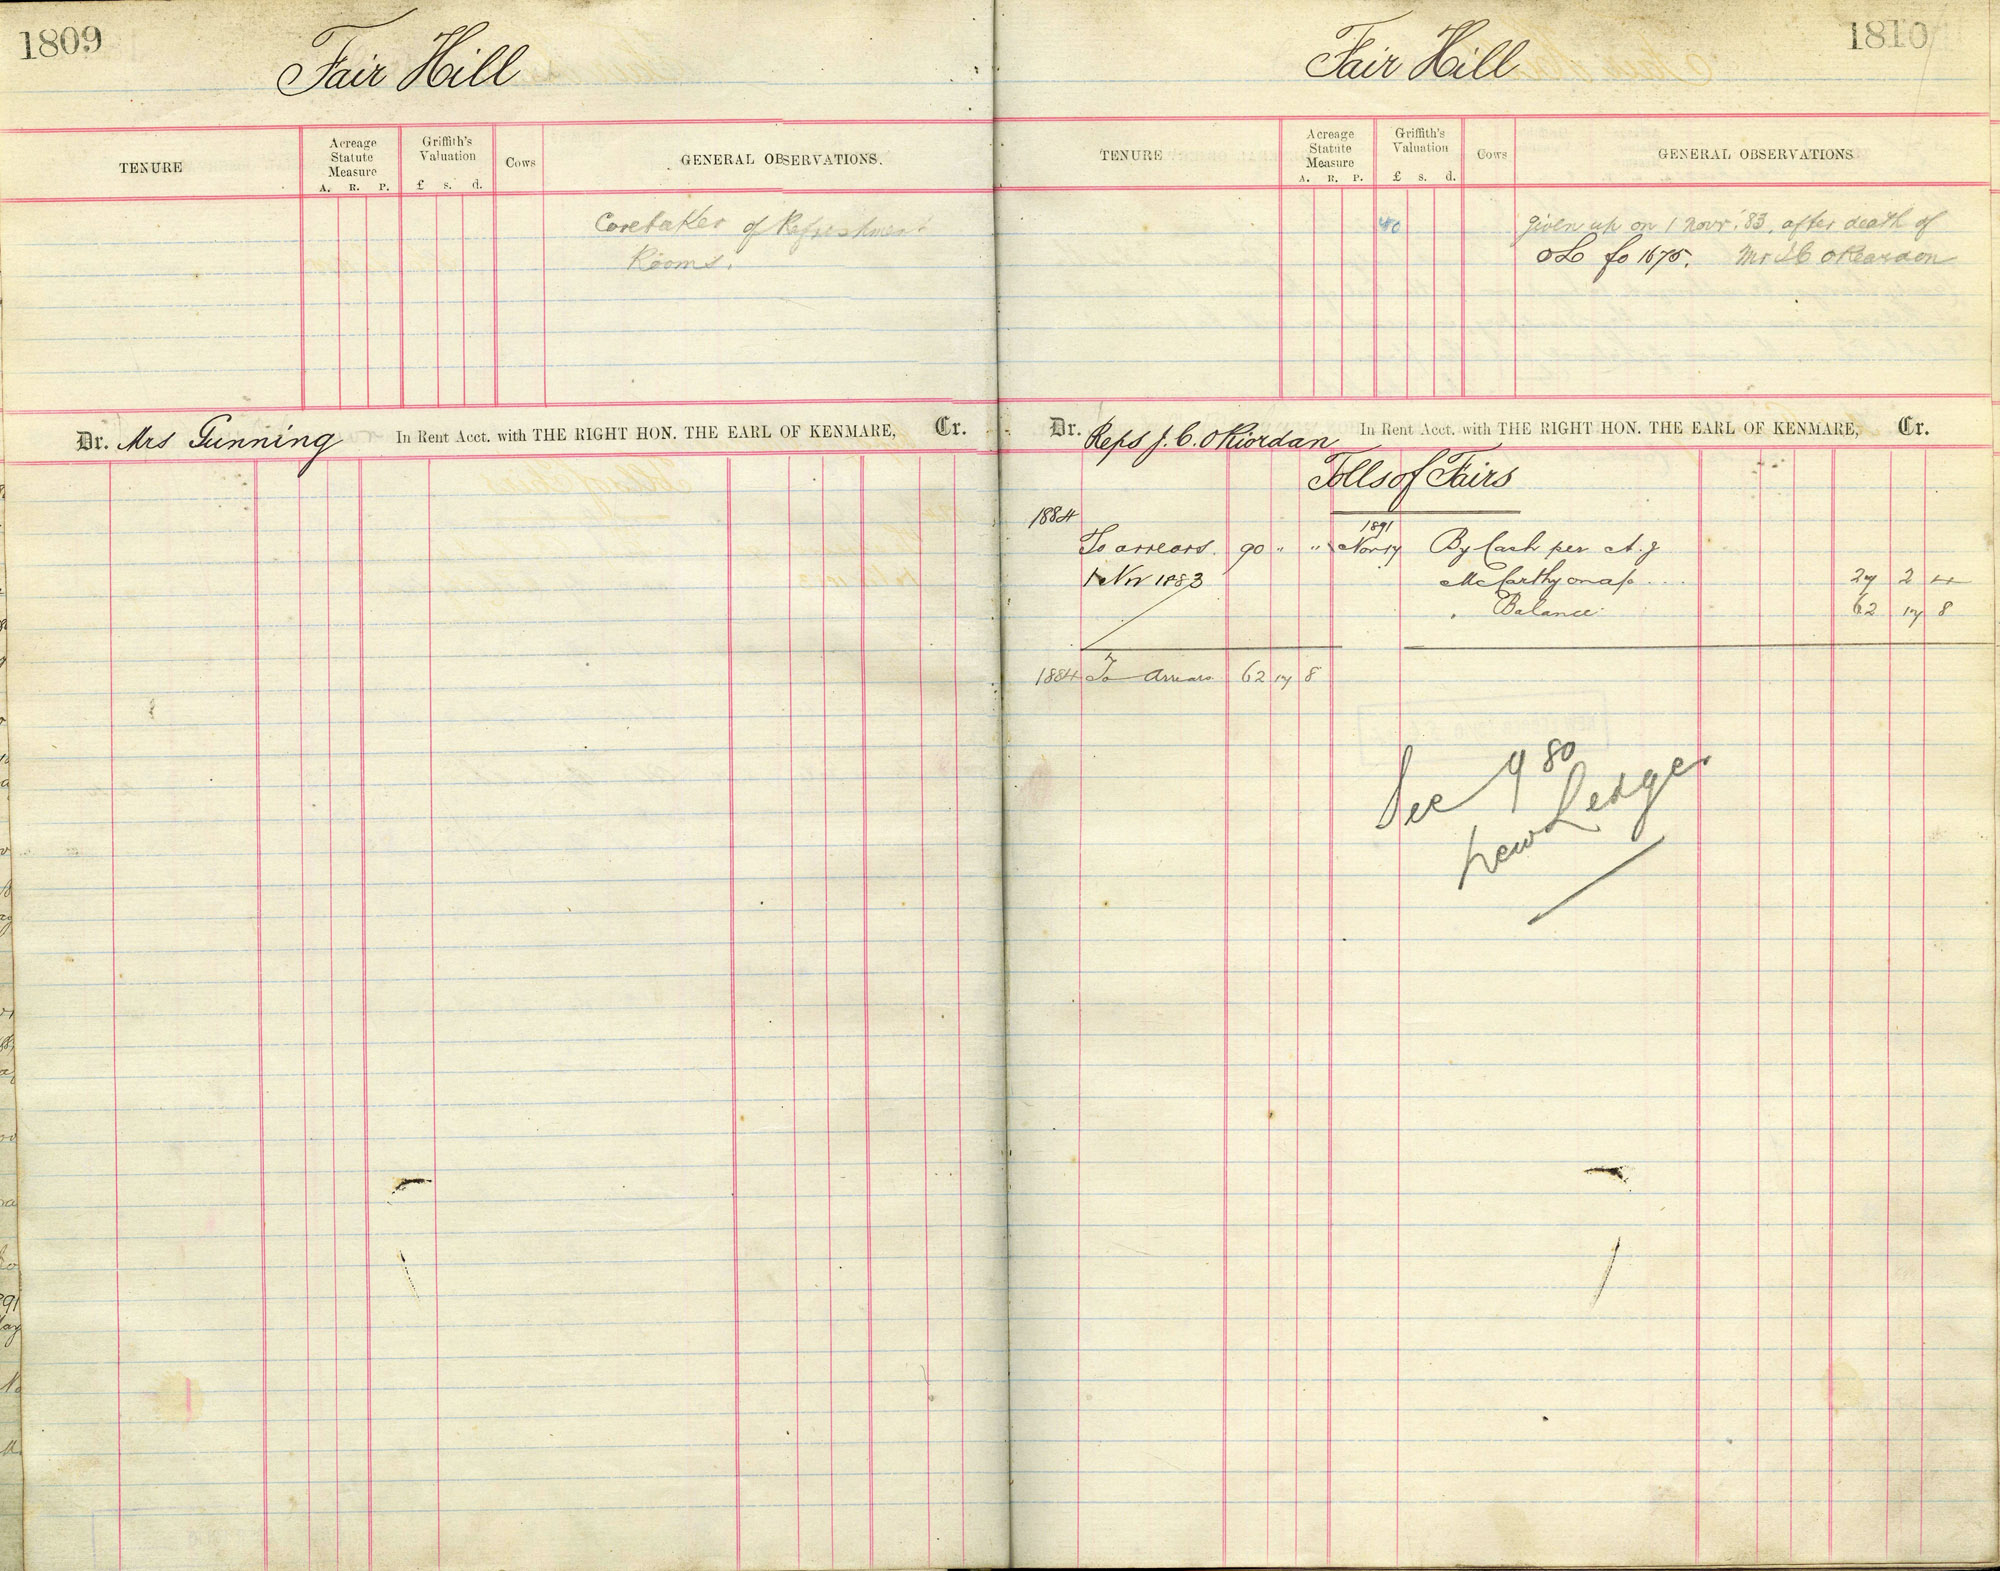 1809
Fair Hill
TENURE
Acreage Statute Measure
A. R. P.
Griffith's Valuation
£ s. d.
Cows
GENERAL OBSERVATIONS.
Caretaker of Refreshment
Rooms.
Dr. Mrs Gunning In Rent Acct. with THE RIGHT HON. THE EARL OF KENMARE, Cr.
1810
Fair Hill
TENURE
Acreage Statute Measure
A. R. P.
Griffith's Valuation
£ s. d.
Cows
GENERAL OBSERVATIONS
40 Given up on 1 Novr '83, after death of
OL fo 1675. Mr J C O'Reardon
Dr. Reps J. C. O'Riordan In Rent Acct. with THE RIGHT HON. THE EARL OF KENMARE, Cr.
Tolls of Fairs
1884 1891
To arrears. 90 " " Nov 17 By Cash per A. J
1 Nov 1883 McCarthy on a/c 27 2 4
" Balance 62 17 8
1884 To Arrears 62 17 8
See 980
New Ledger